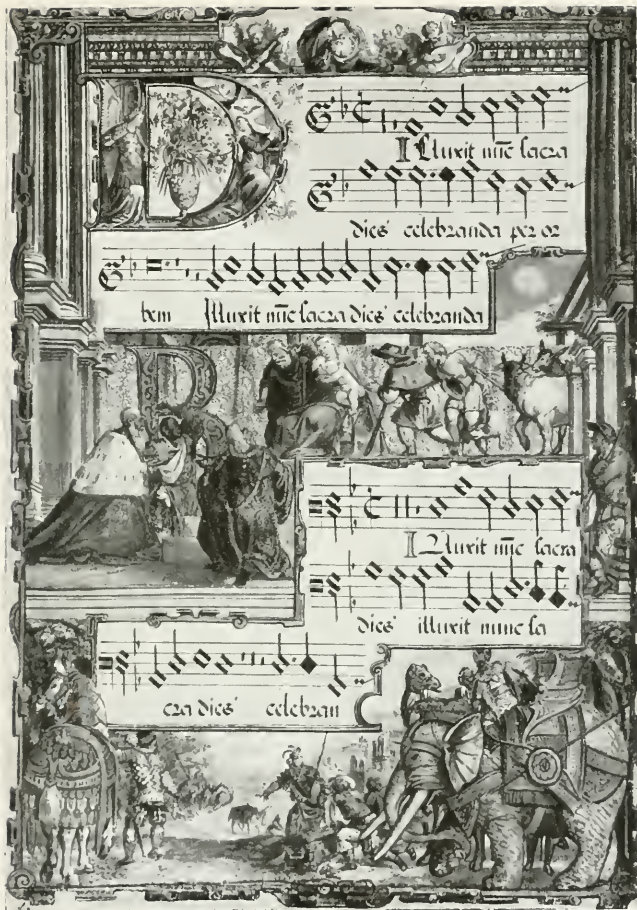 D
Illuxit nūc sacra
dies celebranda per or
bem Illuxit nūc sacra dies celebranda
Illuxit nūc sacra
dies illuxit nunc sa
cra dies celebran